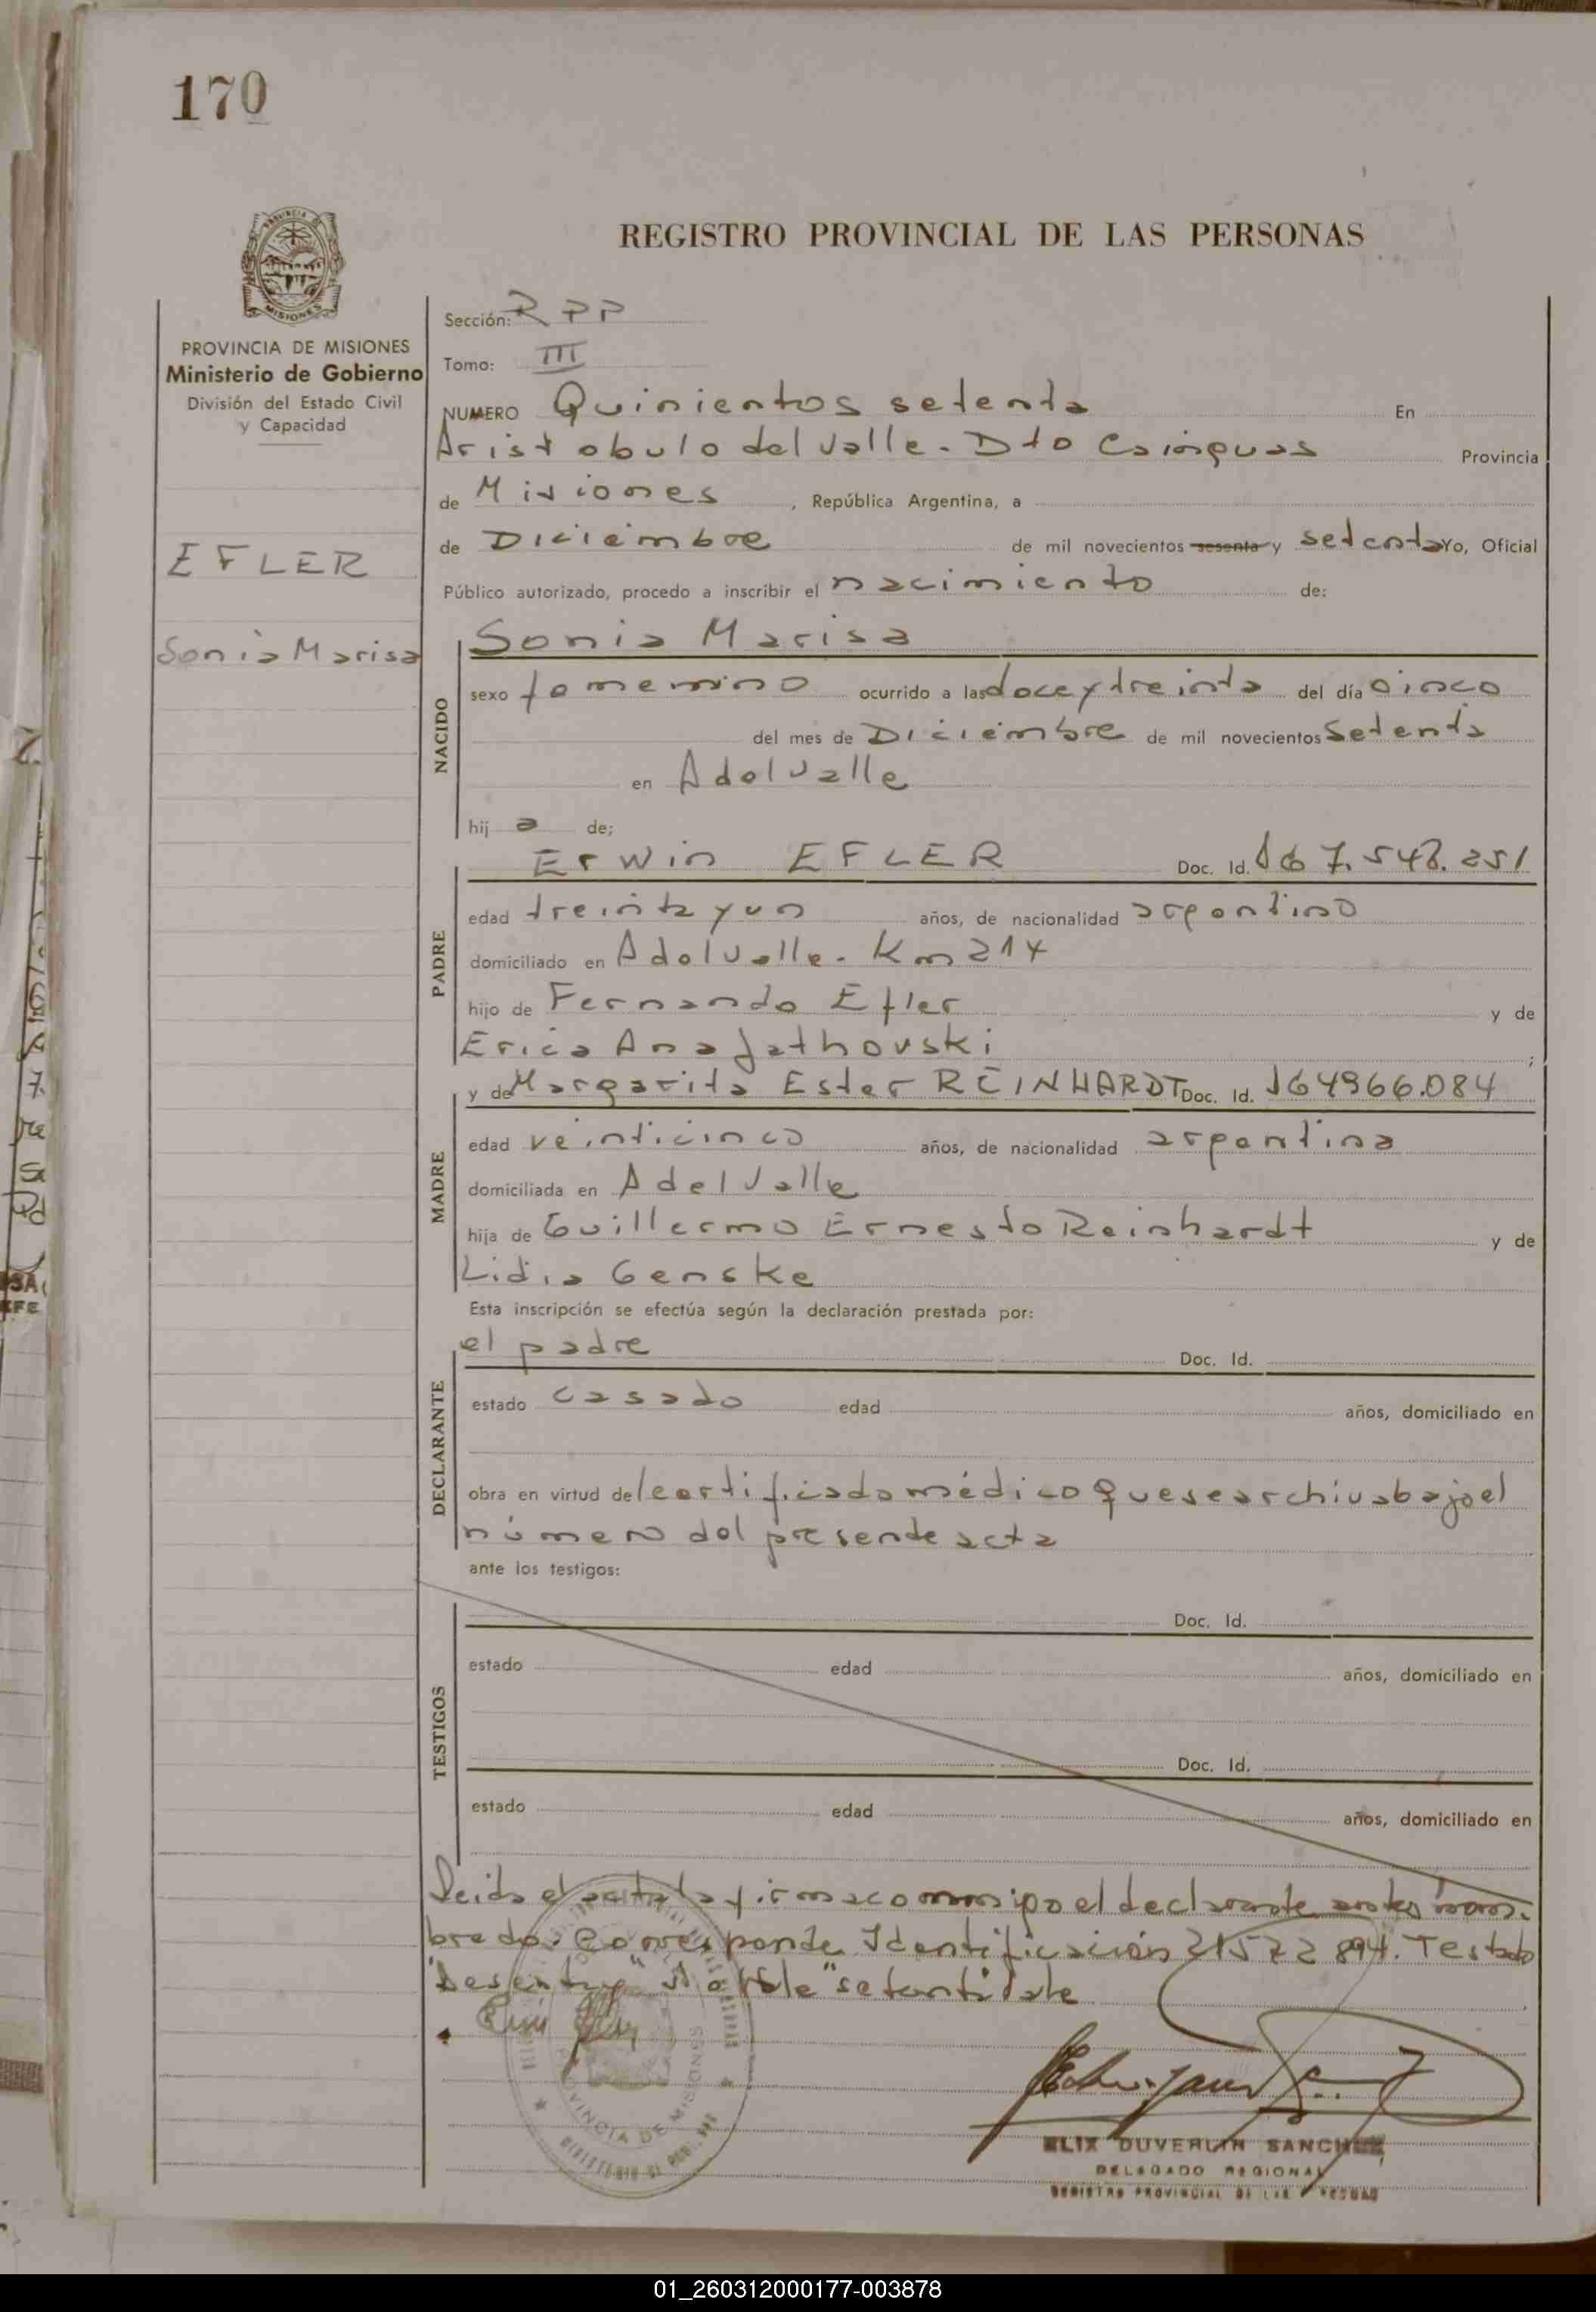 170
REGISTRO PROVINCIAL DE LAS PERSONAS
PROVINCIA DE MISIONES
Ministerio de Gobierno
División del Estado Civil
y Capacidad
EFLER
Sonia Marisa
Sección: RPP
Tomo: III
NUMERO Quinientos setenta En
Aristobulo del Valle. Dto Cainguas Provincia
de Misiones, República Argentina, a
de Diciembre de mil novecientos sesenta y setenta Yo, Oficial
Público autorizado, procedo a inscribir el nacimiento de:
NACIDO
Sonia Marisa
sexo femenino ocurrido a las doce y treinta del día cinco
del mes de Diciembre de mil novecientos setenta
en A del Valle
hij a de;
PADRE
Erwin EFLER Doc. Id. 7.548.251
edad treinta y un años, de nacionalidad argentino
domiciliado en A del Valle. Km 214
hijo de Fernando Efler y de
Erica Ana Jathovski ;
MADRE
y de Margarita Ester REINHARDT Doc. Id. 4966.084
edad veinticinco años, de nacionalidad argentina
domiciliada en A del Valle
hija de Guillermo Ernesto Reinhardt y de
Lidia Genske
Esta inscripción se efectúa según la declaración prestada por:
DECLARANTE
el padre Doc. Id.
estado casado edad años, domiciliado en
obra en virtud del certificado médico que se archiva bajo el
número del presente acta
ante los testigos:
TESTIGOS
Doc. Id.
estado edad años, domiciliado en
Doc. Id.
estado edad años, domiciliado en
Leida el acta la firma conmigo el declarante antes nom-
brado. Corresponde Identificación 21572894. Testado
"sesenta y" No Vale "setenta" Vale
PROVINCIA DE MISIONES
ELIX DUVERLIN SANCHEZ
DELEGADO REGIONAL
REGISTRO PROVINCIAL DE LAS PERSONAS
01_260312000177-003878